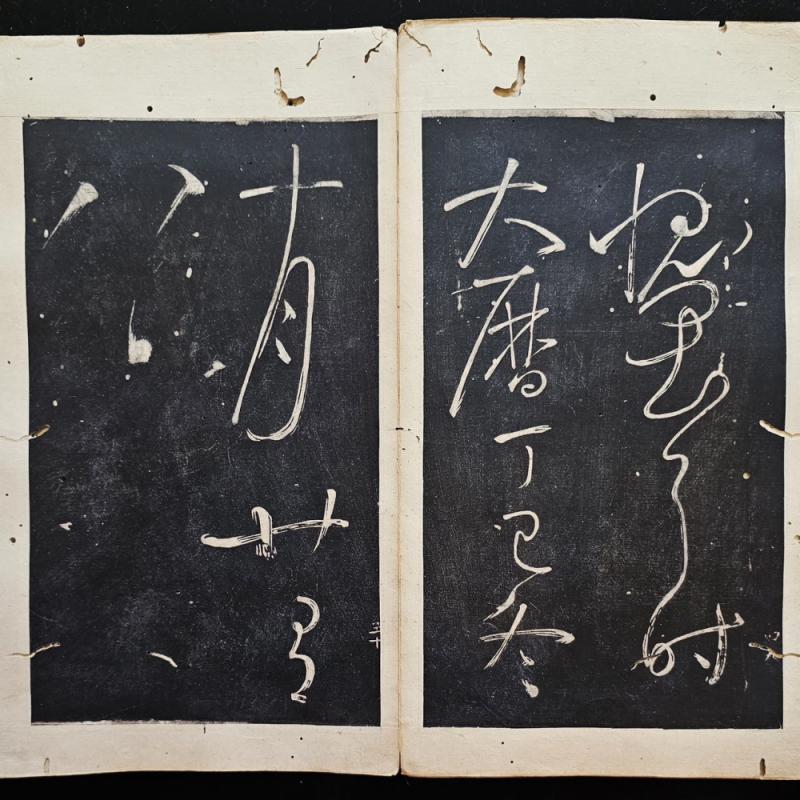 愧畏耳時
大曆丁巳冬
十月廿有
八日